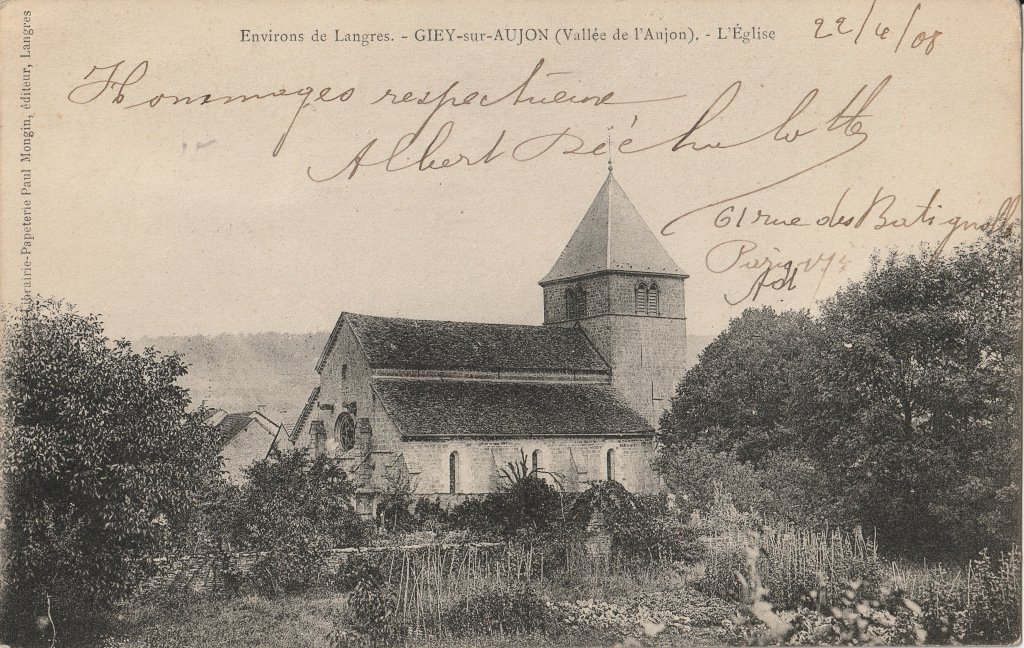 Environs de Langres. - GIEY-sur-AUJON (Vallée de l'Aujon). - L'Église
22/4/08
Hommages respectueux
Albert Déchelotte
61 rue des Batignolles
Paris 17e
Librairie-Papeterie Paul Mongin, éditeur, Langres